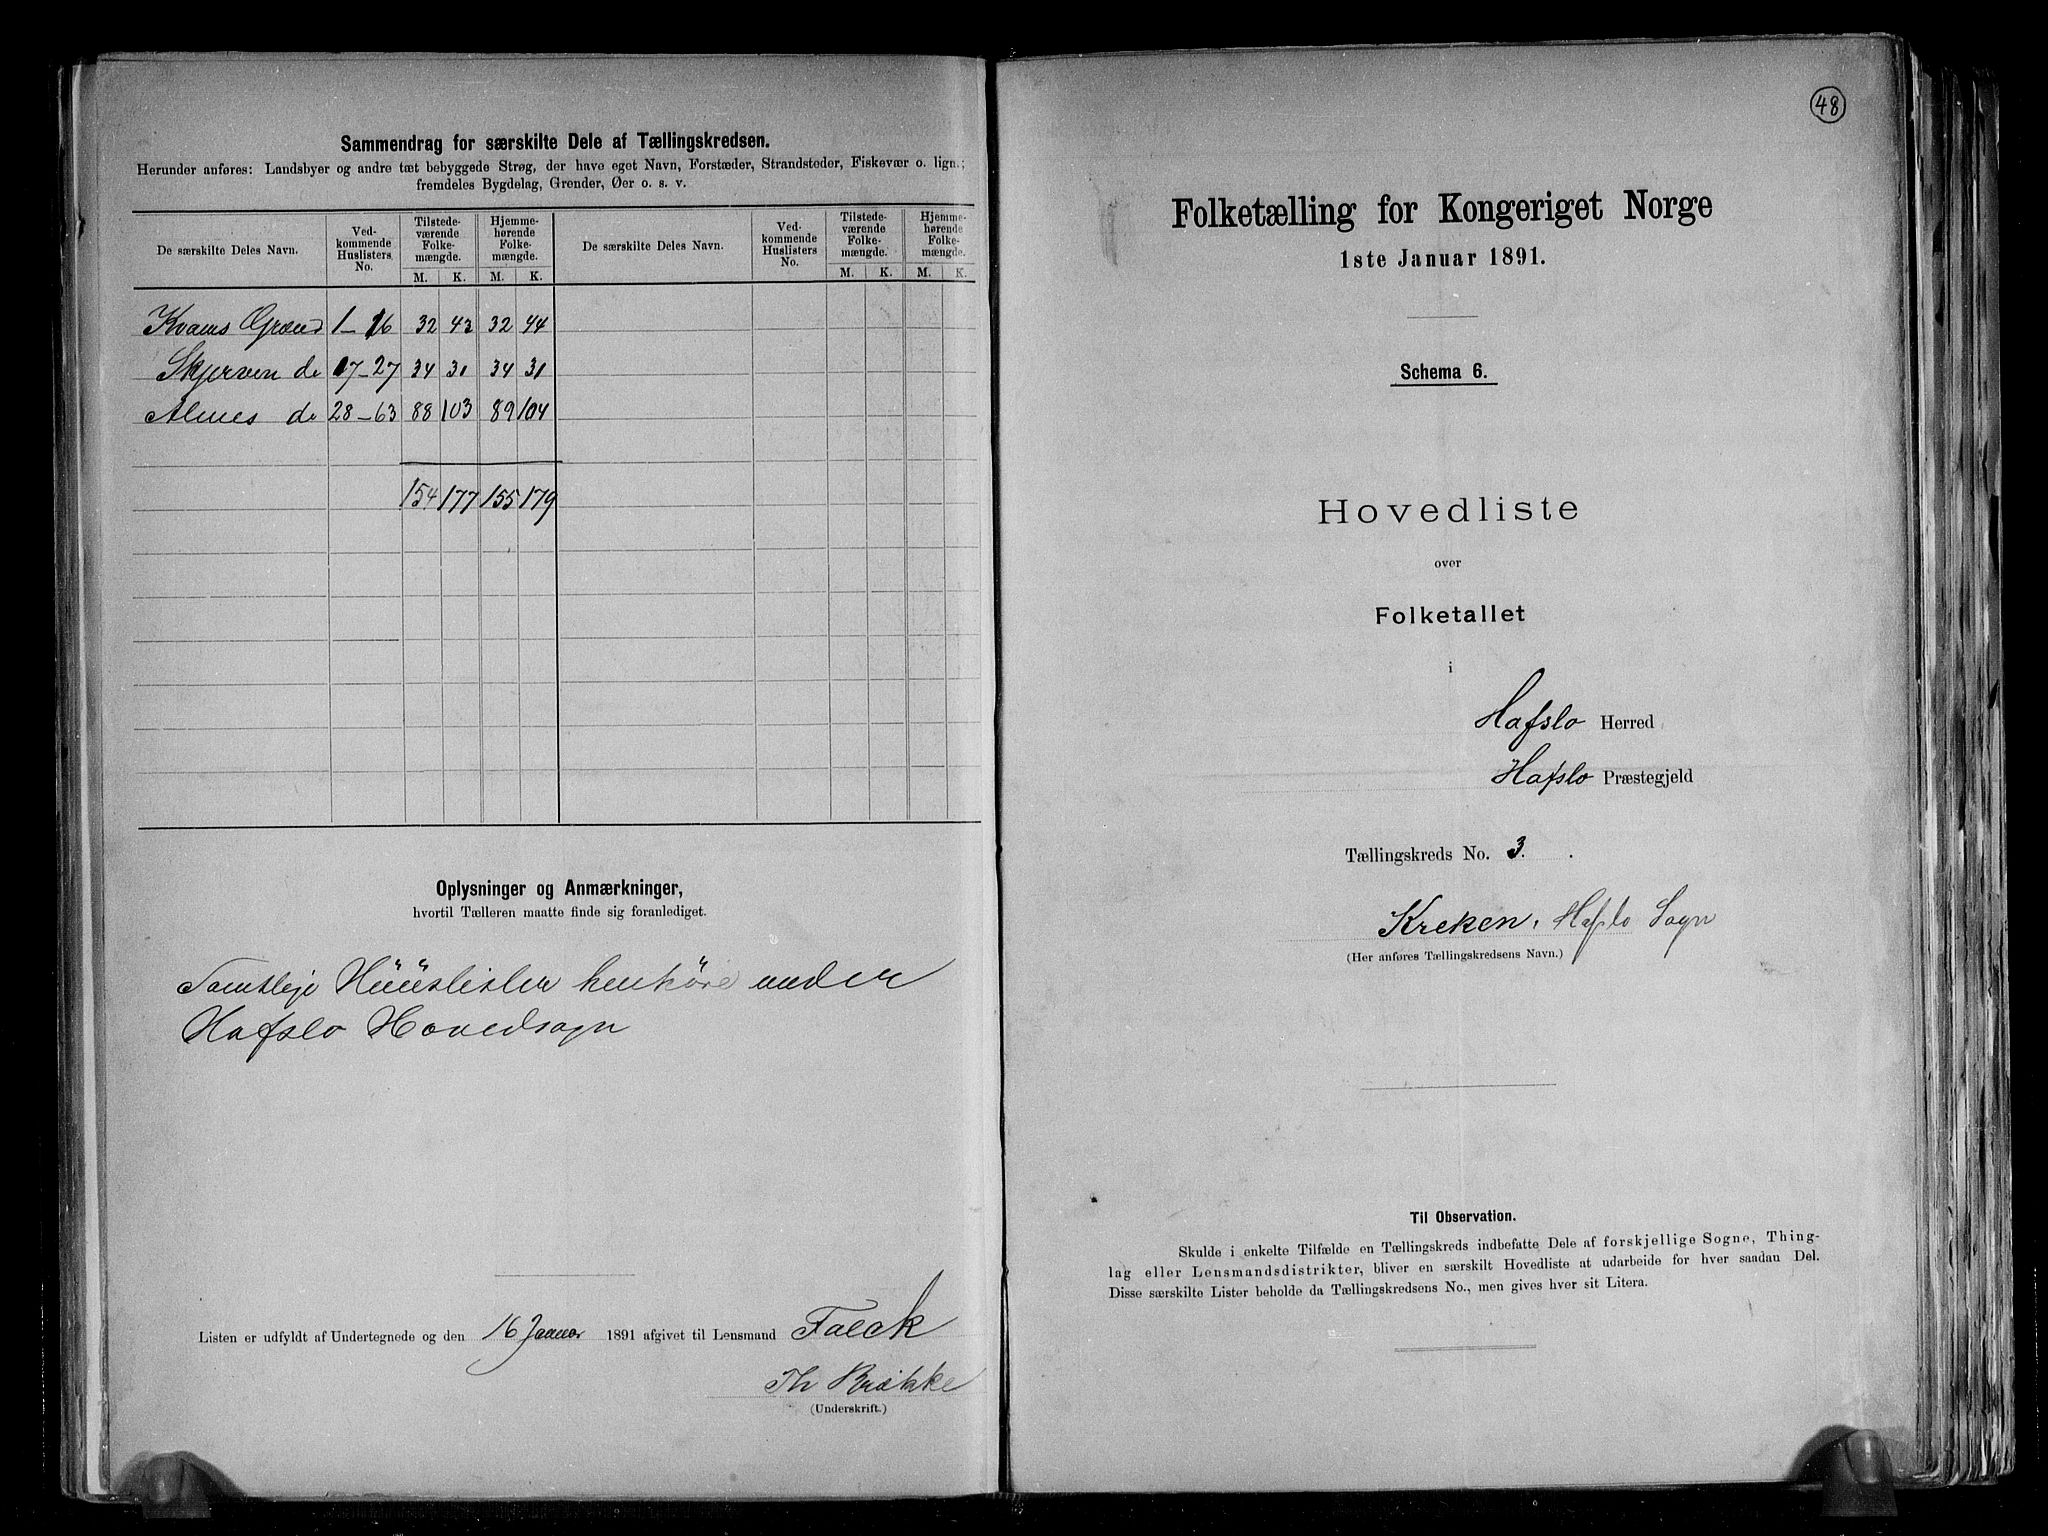 Sammendrag for særskilte Dele af Tællingskredsen.
Herunder anføres: Landsbyer og andre tæt bebyggede Strøg, der have eget Navn, Forstæder, Strandsteder, Fiskevær o. lign.;
fremdeles Bygdelag, Grender, Øer o. s. v.
De særskilte Deles Navn. Ved-kommende Huslisters No. Tilstede-værende Folke-mængde. M. K. Hjemme-hørende Folke-mængde. M. K. De særskilte Deles Navn. Ved-kommende Huslisters No. Tilstede-værende Folke-mængde. M. K. Hjemme-hørende Folke-mængde. M. K.
Kvams Grænd 1-16 32 43 32 44
Skjerven do 17-27 34 31 34 31
Alnes do 28-63 88 103 89 104
154 177 155 179
Oplysninger og Anmærkninger,
hvortil Tælleren maatte finde sig foranlediget.
Samtlige Huuslister henhøre under
Hafslo Hovedsogn
Listen er udfyldt af Undertegnede og den 16 Januar 1891 afgivet til Lensmand Falck
Th
(Underskrift.)
48
Folketælling for Kongeriget Norge
1ste Januar 1891.
Schema 6.
Hovedliste
over
Folketallet
i
Hafslo Herred
Hafslo Præstegjeld
Tællingskreds No. 3.
Kreken, Hafslo Sogn
(Her anføres Tællingskredsens Navn.)
Til Observation.
Skulde i enkelte Tilfælde en Tællingskreds indbefatte Dele af forskjellige Sogne, Thing-
lag eller Lensmandsdistrikter, bliver en særskilt Hovedliste at udarbeide for hver saadan Del.
Disse særskilte Lister beholde da Tællingskredsens No., men gives hver sit Litera.